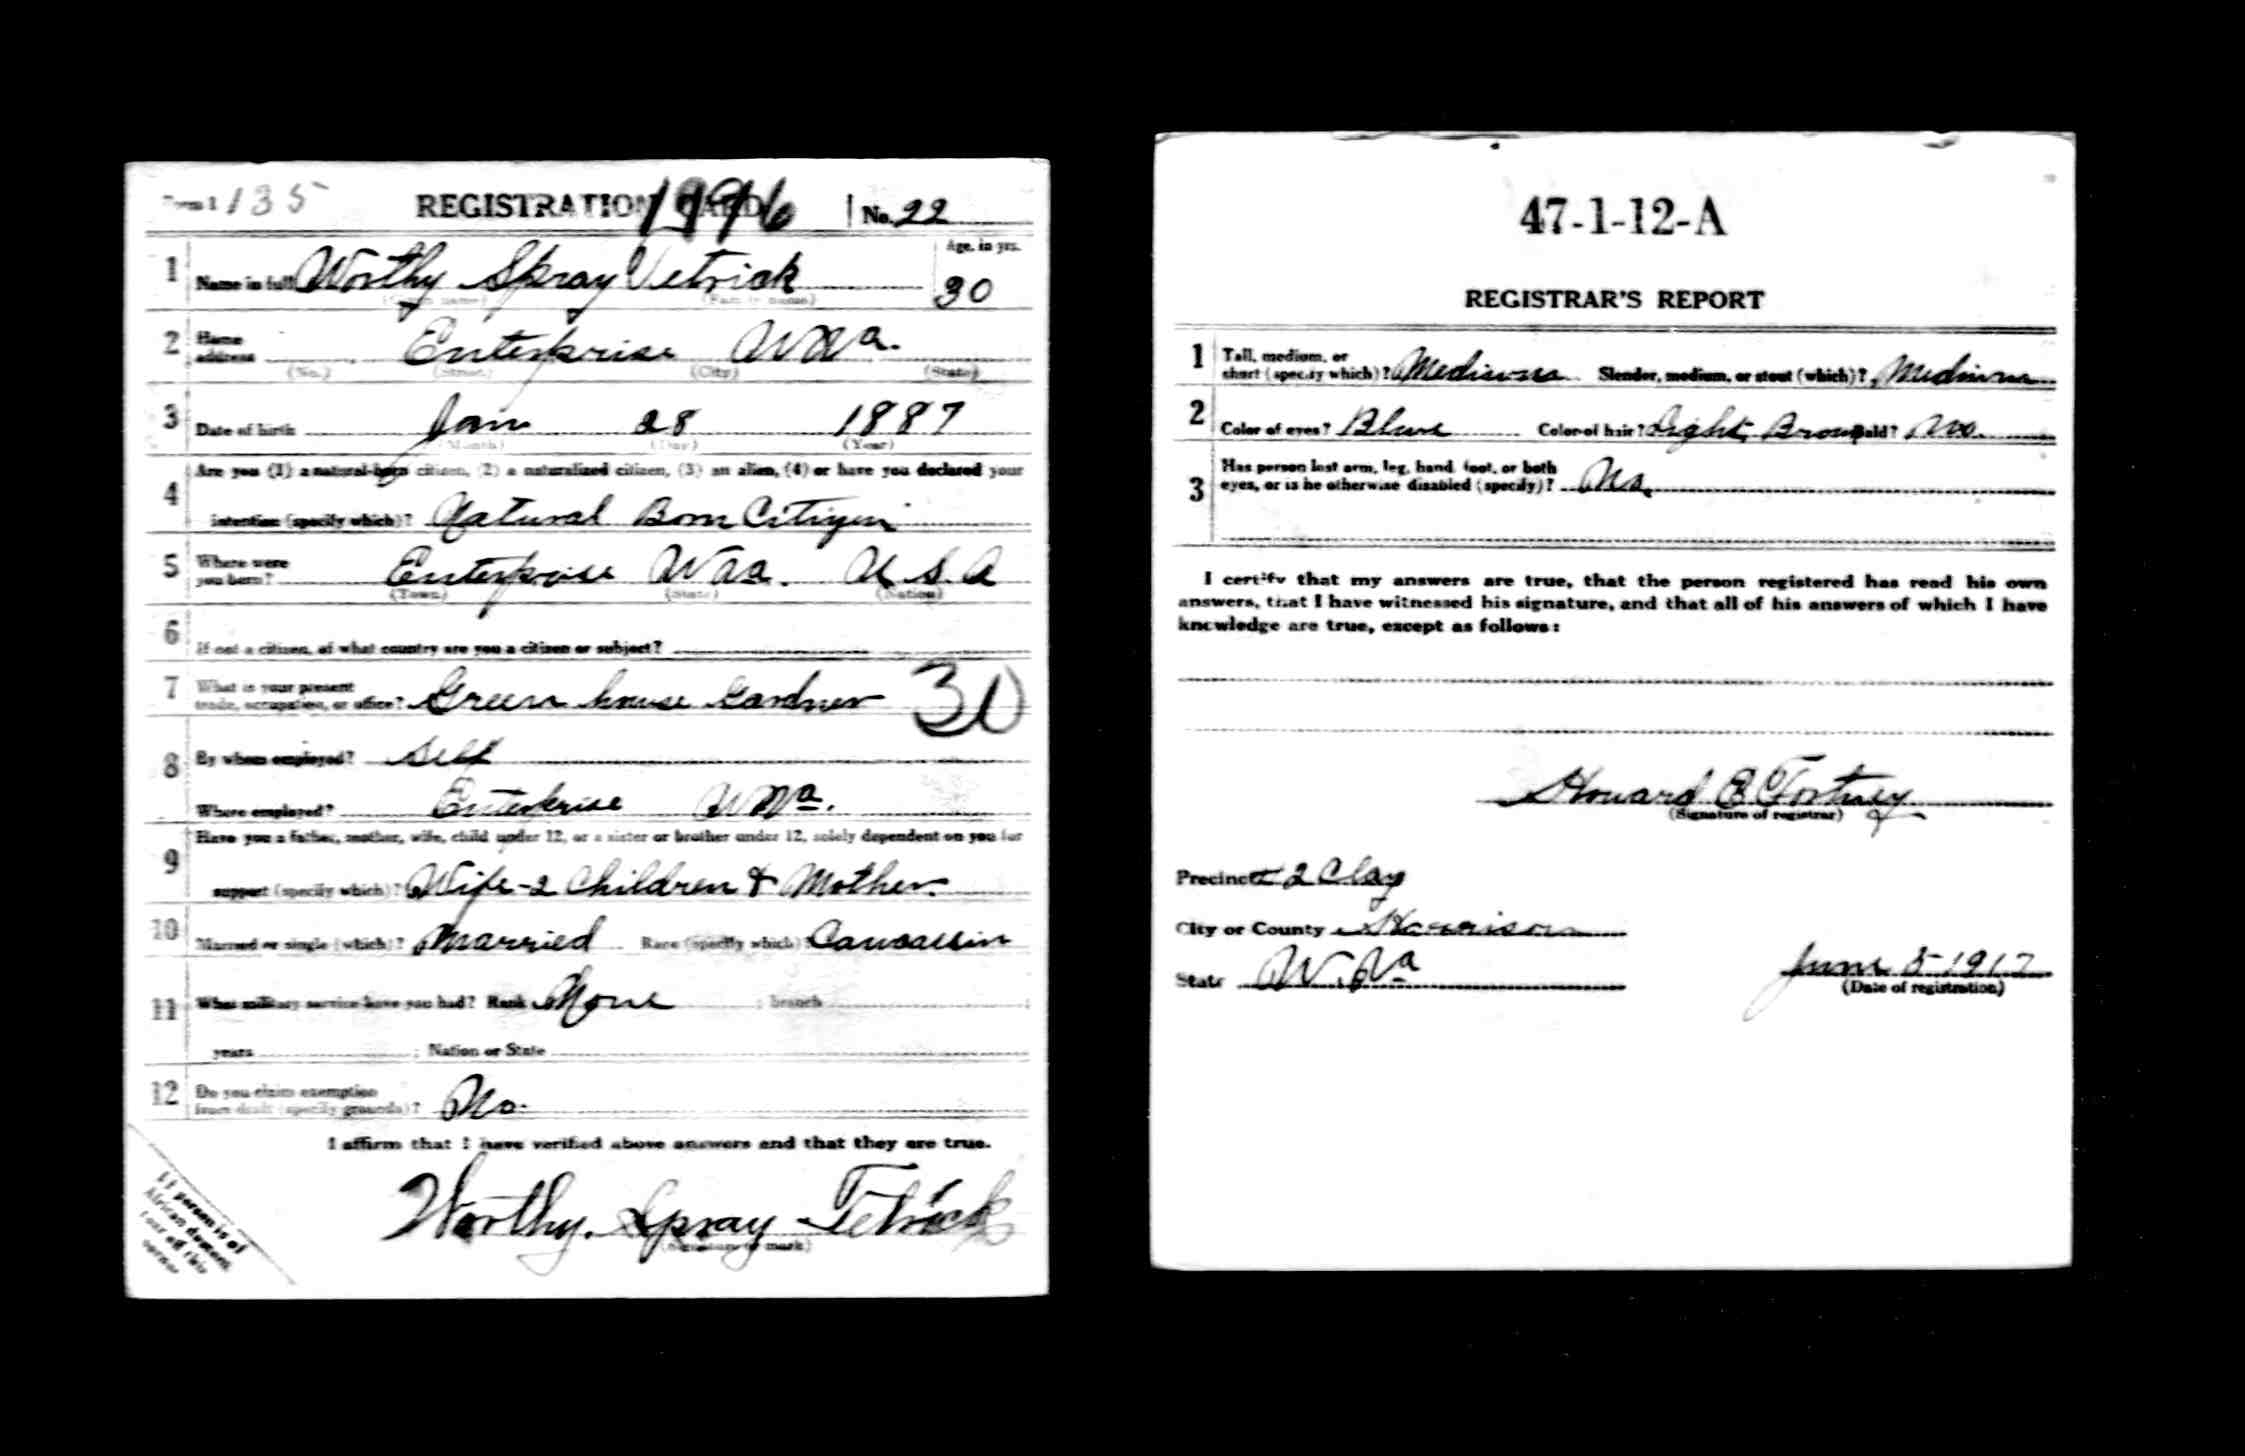 Form 1 135 REGISTRATION CARD 1996 No. 22
1 Name in full Worthy Spray Tetrick Age, in yrs. 30
(Given name) (Family name)
2 Home address Enterprise W Va.
(No.) (Street) (City) (State)
3 Date of birth Jan 28 1887
(Month) (Day) (Year)
Are you (1) a natural-born citizen, (2) a naturalized citizen, (3) an alien, (4) or have you declared your
4 intention (specify which)? Natural Born Citizen
5 Where were you born? Enterprise W Va. U.S.A
(Town) (State) (Nation)
6 If not a citizen, of what country are you a citizen or subject?
7 What is your present trade, occupation, or office? Green house Gardner 30
8 By whom employed? Self
Where employed? Enterprise W Va.
Have you a father, mother, wife, child under 12, or a sister or brother under 12, solely dependent on you for
9 support (specify which)? Wife-2 Children & Mother
10 Married or single (which)? Married Race (specify which)? Caucassin
11 What military service have you had? Rank None ; branch
years ; Nation or State
12 Do you claim exemption from draft (specify grounds)? No.
I affirm that I have verified above answers and that they are true.
Worthy. Spray Tetrick
(Signature or mark)
If person is of
African descent,
tear off this
corner
47-1-12-A
REGISTRAR'S REPORT
1 Tall, medium, or short (specify which)? Medium Slender, medium, or stout (which)? Medium
2 Color of eyes? Blue Color of hair? Light Brown Bald? No.
3 Has person lost arm, leg, hand, foot, or both eyes, or is he otherwise disabled (specify)? No.
I certify that my answers are true, that the person registered has read his own
answers, that I have witnessed his signature, and that all of his answers of which I have
knowledge are true, except as follows:
Howard E Fortney
(Signature of registrar)
Precinct 2 Clay
City or County Harrison
State W. Va June 5-1917
(Date of registration)